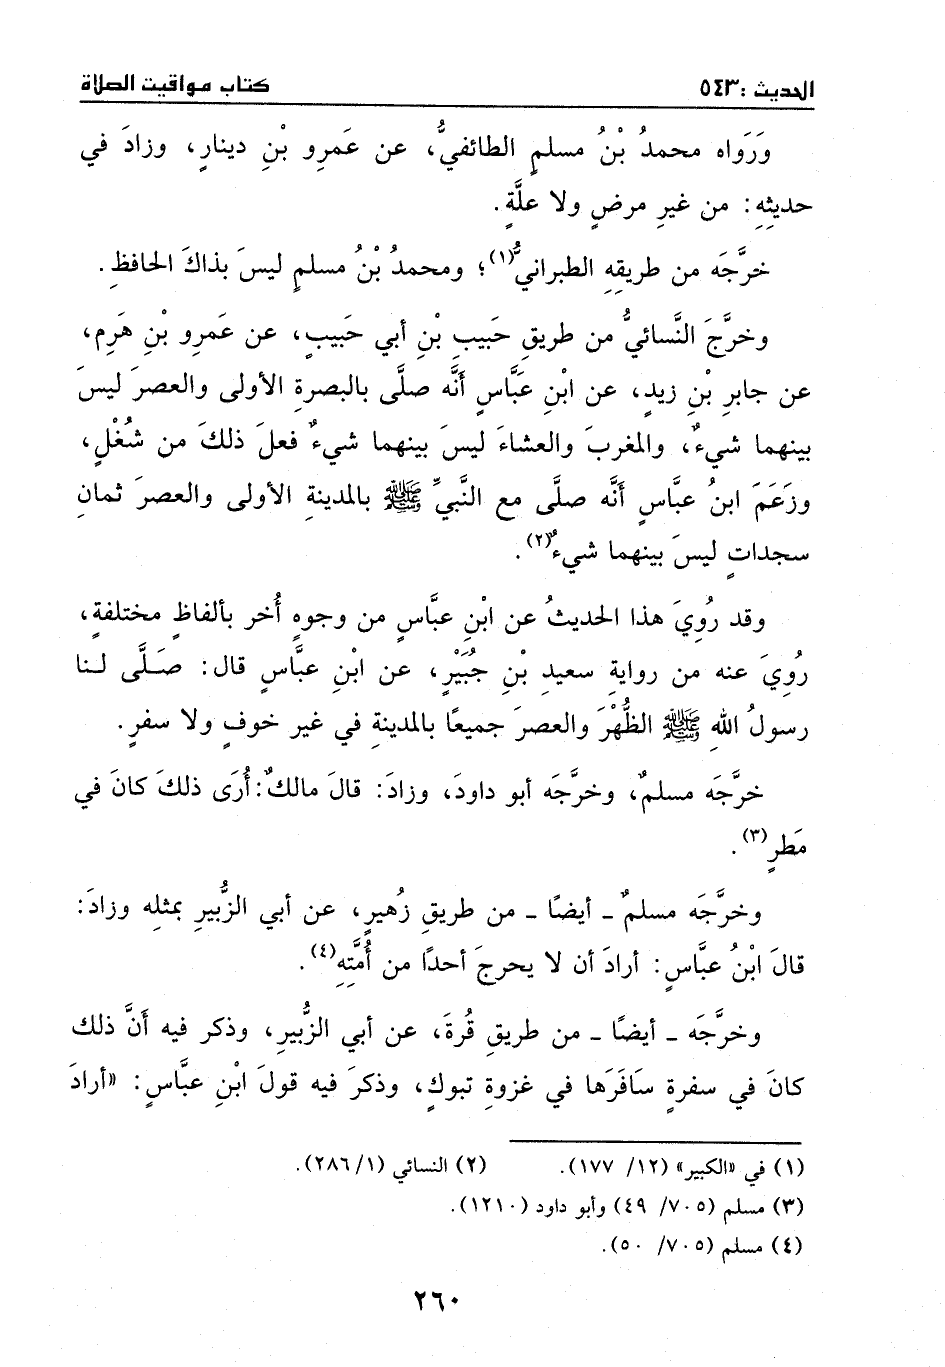 الحديث : ٥٤٣
كتاب مواقيت الصلاة
وَرَواه محمدُ بْنُ مسلمٍ الطائفيُّ، عن عَمرِو بْنِ دينارٍ، وزادَ في
حديثِهِ: من غيرِ مرضٍ ولا علَّةٍ.
خرَّجَه من طريقِهِ الطبرانيُّ(١)؛ ومحمدُ بْنُ مسلمٍ ليسَ بذاكَ الحافظِ.
وخرَّجَ النَّسائيُّ من طريقِ حَبيبِ بْنِ أبي حَبيبٍ، عن عَمرِو بْنِ هَرِم،
عن جابرِ بْنِ زيدٍ، عن ابْنِ عَبَّاسٍ أنَّه صلَّى بالبصرةِ الأولى والعصرَ ليسَ
بينهما شيءٌ، والمغربَ والعشاءَ ليسَ بينهما شيءٌ فعلَ ذلكَ من شُغْلٍ،
وزَعَمَ ابنُ عبَّاسٍ أنَّه صلَّى مع النَّبيِّ ﷺ بالمدينةِ الأولى والعصرَ ثمانِ
سجداتٍ ليسَ بينهما شيءٌ(٢).
وقد رُوِيَ هذا الحديثُ عن ابْنِ عبَّاسٍ من وجوهٍ أُخر بألفاظٍ مختلفةٍ،
رُويَ عنه من روايةِ سعيدِ بْنِ جُبَيْرٍ، عن ابْنِ عبَّاسٍ قال: صَـلَّى لـنا
رسولُ اللهِ ﷺ الظُّهْرَ والعصرَ جميعًا بالمدينةِ في غير خوفٍ ولا سفرٍ.
خرَّجَه مسلمٌ، وخرَّجَه أبو داودَ، وزادَ: قالَ مالكٌ: أُرَى ذلكَ كانَ في
مَطرٍ(٣).
وخرَّجَه مسلمٌ ـ أيضًا ـ من طريقِ زُهيرٍ، عن أبي الزُّبيرِ بمثلِه وزادَ:
قالَ ابْنُ عبَّاسٍ: أرادَ أن لا يحرجَ أحدًا من أُمَّتِهِ(٤).
وخرَّجَه ـ أيضًا ـ من طريقِ قُرةَ، عن أبي الزُّبيرِ، وذكر فيه أنَّ ذلك
كانَ في سفرةٍ سَافَرَها في غزوةِ تبوكٍ، وذكرَ فيه قولَ ابْنِ عبَّاسٍ: «أرادَ
(١) في «الكبير» (١٢/ ١٧٧). (٢) النسائي (٢٨٦/١).
(٣) مسلم (٧٠٥/ ٤٩) وأبو داود (١٢١٠).
(٤) مسلم (٧٠٥/ ٥٠).
٢٦٠